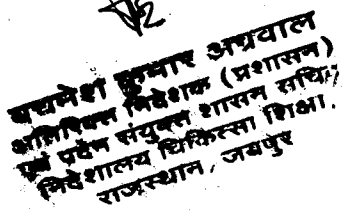 बचनेश कुमार अग्रवाल
अतिरिक्त निदेशक (प्रशासन)
एवं पदेन संयुक्त शासन सचिव,
निदेशालय चिकित्सा शिक्षा,
राजस्थान, जयपुर